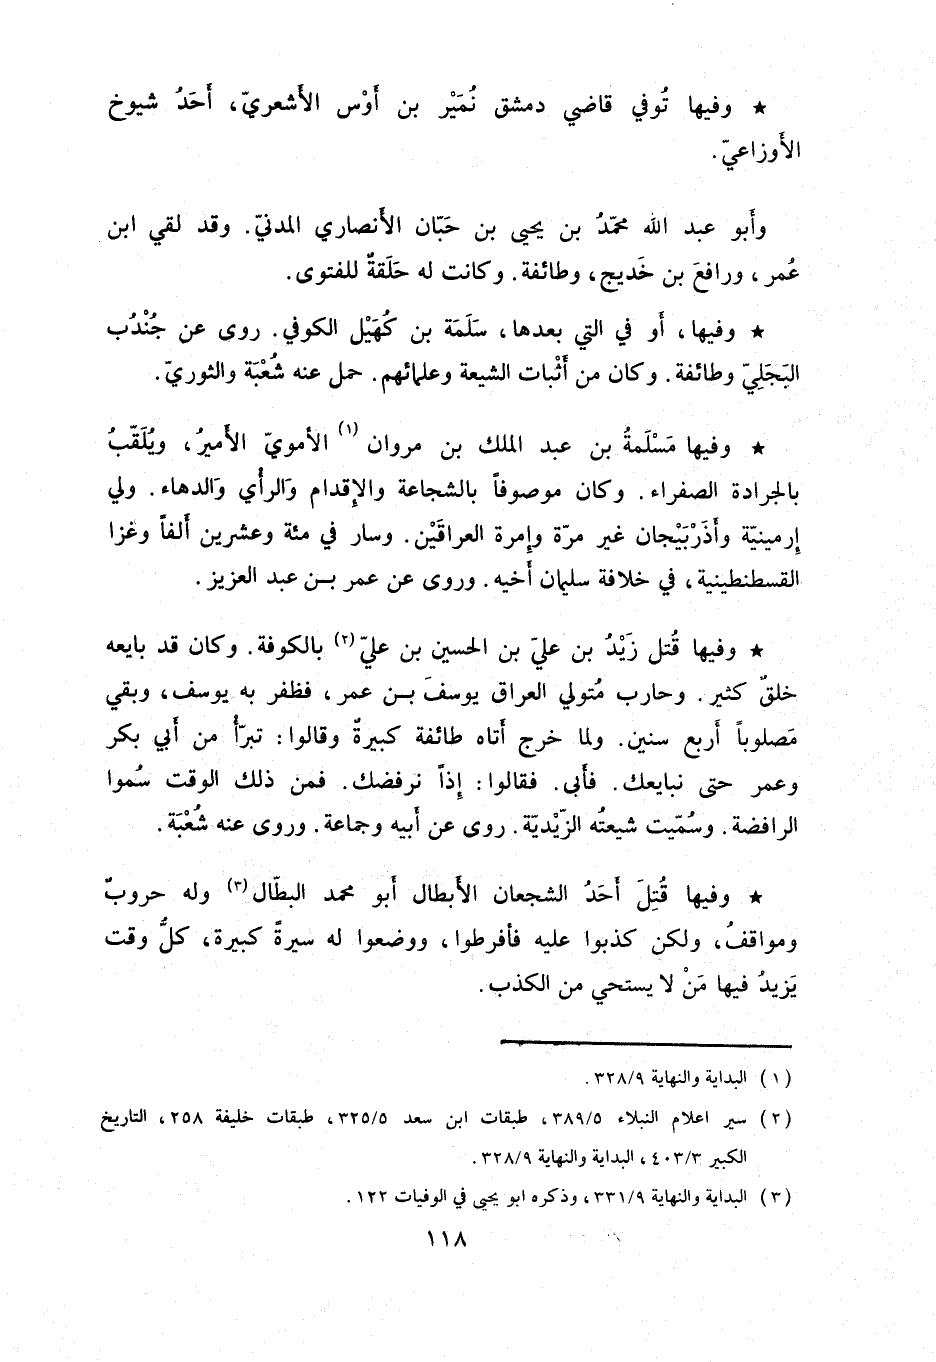 ★ وفيها تُوفي قاضي دمشق نُمَيْر بن أَوْس الأشعريّ، أَحَدُ شيوخ
الأوزاعيّ.
وأبو عبد الله محمّدُ بن يحيى بن حَبّان الأنصاري المدنيّ. وقد لقي ابن
عُمر، ورافعَ بن خَديج، وطائفة. وكانت له حَلَقةٌ للفتوى.
★ وفيها، أو في التي بعدها، سَلَمَة بن كُهَيْل الكوفي. روى عن جُنْدُب
البَجَلِيّ وطائفة. وكان من أَثْبات الشيعة وعلمائهم. حمل عنه شُعْبَة والثوريّ.
★ وفيها مَسْلَمةُ بن عبد الملك بن مروان (١) الأمويّ الأميرُ، ويُلَقّبُ
بالجرادة الصفراء. وكان موصوفاً بالشجاعة والإقدام والرأي والدهاء. ولي
إرمينيّة وأَذَرْبَيْجان غير مرّة وإمرة العراقَيْن. وسار في مئة وعشرين ألفاً وغزا
القسطنطينية، في خلافة سليمان أخيه. وروى عن عمر بن عبد العزيز.
★ وفيها قُتل زَيْدُ بن عليّ بن الحسين بن عليّ (٢) بالكوفة. وكان قد بايعه
خلقٌ كثير. وحارب مُتولي العراق يوسفَ بن عمر، فظفر به يوسف، وبقي
مَصلوباً أربع سنين. ولما خرج أتاه طائفة كبيرةٌ وقالوا: تبرّأ من أبي بكر
وعمر حتى نبايعك. فأبى. فقالوا: إذاً نرفضك. فمن ذلك الوقت سُموا
الرافضة. وسُمّيت شيعتُه الزّيْديّة. روى عن أبيه وجماعة. وروى عنه شُعْبَة.
★ وفيها قُتِلَ أَحَدُ الشجعان الأبطال أبو محمد البطّال (٣) وله حروبٌ
ومواقفُ، ولكن كذبوا عليه فأفرطوا، ووضعوا له سيرةً كبيرة، كلُّ وقت
يَزيدُ فيها مَنْ لا يستحي من الكذب.
(١) البداية والنهاية ٣٢٨/٩.
(٢) سير اعلام النبلاء ٣٨٩/٥، طبقات ابن سعد ٣٢٥/٥، طبقات خليفة ٢٥٨، التاريخ
الكبير ٤٠٣/٣، البداية والنهاية ٣٢٨/٩.
(٣) البداية والنهاية ٣٣١/٩، وذكره ابو يحيى في الوفيات ١٢٢.
١١٨